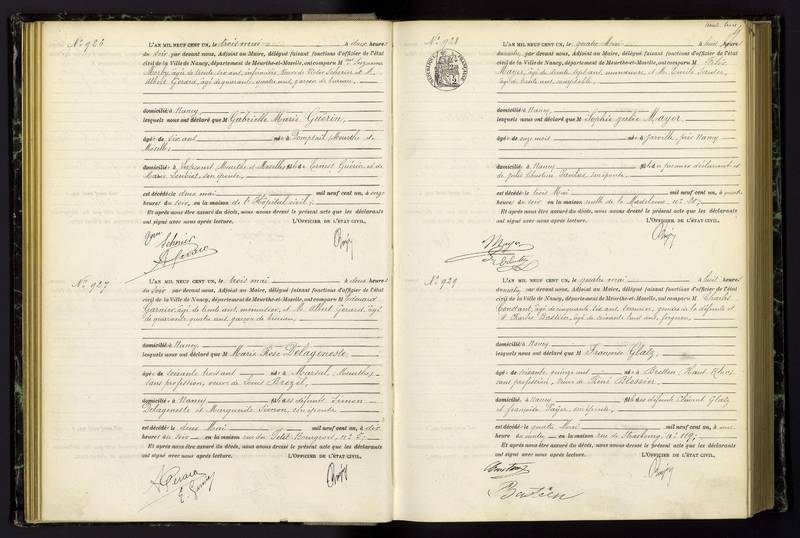 No 926
L'AN MIL NEUF CENT UN, le trois mai à deux heures
du soir par devant nous, Adjoint au Maire, délégué faisant fonctions d'officier de l'état
civil de la Ville de Nancy, département de Meurthe-et-Moselle, ont comparu M
âgé de trente six ans, et M.
Albert Gérard, âgé de quarante quatre ans, garçon de bureau,
domicilié à Nancy
lesquels nous ont déclaré que M Gabrielle Marie Guérin,
âgé de six ans né à Domptail, Meurthe et
Moselle
domicilié à Meurthe et Moselle, fille Ernest Guérin et de
Marie son épouse,
est décédé le deux mai mil neuf cent un, à onze
heures du soir, en la maison de l'Hôpital civil;
Et après nous être assuré du décès, nous avons dressé le présent acte que les déclarants
ont signé avec nous après lecture. L'OFFICIER DE L'ÉTAT CIVIL,
No 927
L'AN MIL NEUF CENT UN, le trois mai à deux heures
du soir par devant nous, Adjoint au Maire, délégué faisant fonctions d'officier de l'état
civil de la Ville de Nancy, département de Meurthe-et-Moselle, ont comparu M Edouard
Garnier, âgé de trente ans, menuisier, et M. Albert Gérard, âgé
de quarante quatre ans garçon de bureau,
domicilié à Nancy
lesquels nous ont déclaré que M Marie Rose Délageneste,
âgé de soixante trois ans né à Marsal, (Meurthe),
sans profession, veuve de Louis
domicilié à Nancy fille des défunts Simon
Délageneste et Marguerite son épouse
est décédé le deux Mai mil neuf cent un, à dix
heures du soir en la maison rue du Petit Bourgeois, no
Et après nous être assuré du décès, nous avons dressé le présent acte que les déclarants
ont signé avec nous après lecture. L'OFFICIER DE L'ÉTAT CIVIL,
No 928
L'AN MIL NEUF CENT UN, le quatre Mai à huit heures
du matin par devant nous, Adjoint au Maire, délégué faisant fonctions d'officier de l'état
civil de la Ville de Nancy, département de Meurthe-et-Moselle, ont comparu M
Mayer, âgé de trente sept ans, manœuvre, et M. Emile
âgé de trente huit ans, comptable,
domicilié à Nancy
lesquels nous ont déclaré que M Sophie Julie Mayer
âgé de onze mois né à Jarville, près Nancy
domicilié à Nancy fille du premier déclarant et
de Julie Christine son épouse,
est décédé le trois Mai mil neuf cent un, à quatre
heures du soir, en la maison ruelle de la Madeleine, no 20;
Et après nous être assuré du décès, nous avons dressé le présent acte que les déclarants
ont signé avec nous après lecture. L'OFFICIER DE L'ÉTAT CIVIL,
Mayer
No 929
L'AN MIL NEUF CENT UN, le quatre mai à huit heures
du matin par devant nous, Adjoint au Maire, délégué faisant fonctions d'officier de l'état
civil de la Ville de Nancy, département de Meurthe-et-Moselle, ont comparu M Charles
Constant, âgé de cinquante six ans, gendre de la défunte et
M. Charles Bastien, âgé de soixante huit ans, forgeron,
domicilié à Nancy
lesquels nous ont déclaré que M Françoise Glatz,
âgé de soixante quinze ans né à Bretten, (Haut Rhin)
sans profession, veuve de René Blessin
domicilié à Nancy fille des défunts Clément Glatz
et Françoise son épouse,
est décédé le quatre Mai mil neuf cent un, à une
heure du matin, en la maison rue de Strasbourg, no 119;
Et après nous être assuré du décès, nous avons dressé le présent acte que les déclarants
ont signé avec nous après lecture. L'OFFICIER DE L'ÉTAT CIVIL,
Constant
Bastien